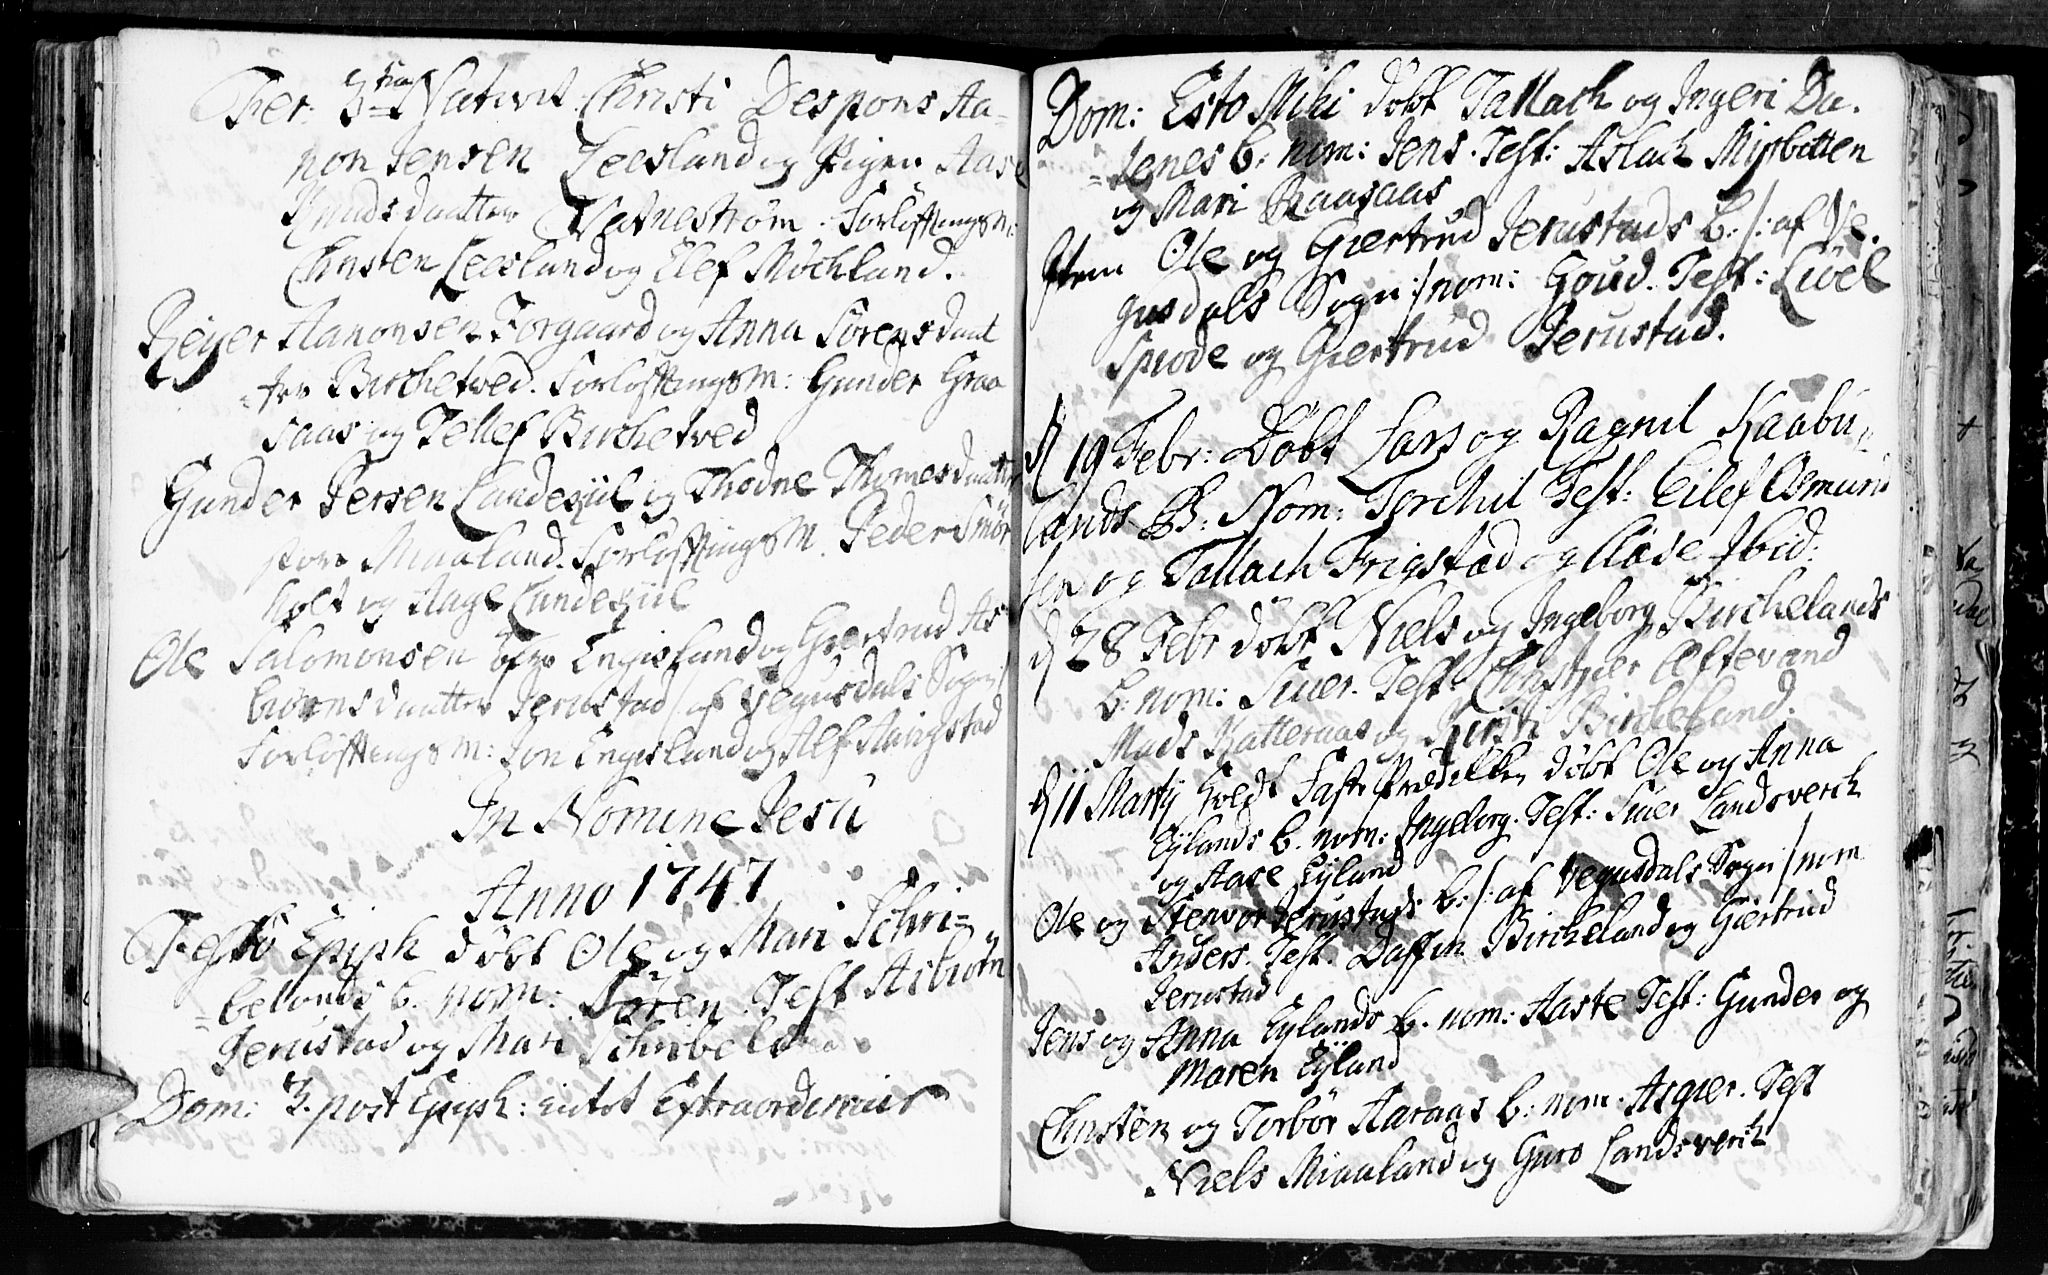 Fer: 3tia Nativit. Christi Despons Aa-
non Jensen Leesland og Pigen Aase
Knudsdaatter Vatnestrøm. Forløftningsm:
Christen Leesland og Elef Mochland.
Reyer Aanonsen Torgaard og Anna Sørensdaat
-ter Birchetved. Forløftningsm: Gunder Graa
saas og Tellef Birchetved
Gunder Persen Landesiil og Thodne Thomesdaatter
Miaaland. Forløftningsm. Peder Smör
holt og Aage Landesiil
Ole Salomonsen Engesland og Giertrud As
biørnsdaatter Jerustad /: af Vegusdals Sogn
Forløftningsm: Jon Engesland og Alf Haugstad
In Nomine Jesu
Anno 1747
Festo Epiph döbt Ole og Mari Schri-
-belands b. nom: Søren. Test Asbiørn
Jerustad og Mari Schribeland
Dom: 3. post Epiph: Extraordinair
Dom: Esto Mihi döbt Tallach og Ingeri Da-
-lenes b: nom: Jens. Test: Aslach Mipbitten
og Mari Raasaas
Item Ole og Giertrud Jerustads b: /: af Ve-
gusdals Sogn :/ nom: Goud. Test: Livel
Spiode og Giertrud Jerustad.
d 19 Febr: Döbt Lars og Ragnil Kaabu-
lands B: Nom: Torchil Test: Eilef Osmund
sen og Tallach Frigstad og Aase Ibid:
d 28 Febr döbt Niels og Ingeborg Birchelands
b: nom: Siuer. Test: Christner Eftevand
Mads Katteraas og Kirsti Bircheland.
d 11 Martij holdt Faste Prædikken döbt Ole og Anna
Eÿlands b. nom: Ingeborg. Test: Siuer Landsverch
og Aase Eÿland
Ole og Stensor Jerustads b: /: af Vegusdals Sogn :/ nom
Anders. Test. Daffin Bircheland og Giertrud
Jerustad
Jens og Anna Eylands b. nom: Aaste Test: Gunder og
Maren Eÿland
Christen og Torbör Aaraas b: nom. Asgier. Test
Niels Miaaland og Guro Landsverch